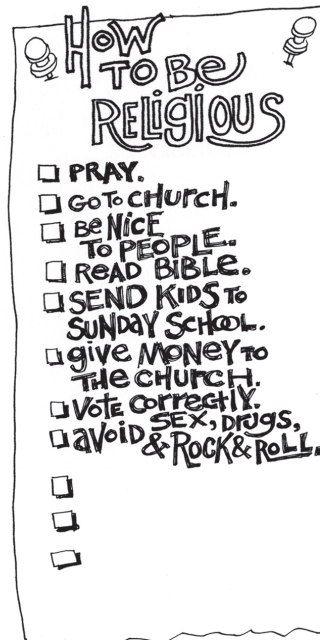 HOW
TO Be
RELIGIOUS
PRAY.
GO TO CHURCH.
Be NICE
TO PEOPLE.
READ BIBLE.
SEND KIDS TO
SUNDAY SCHOOL.
give MONEY TO
THE CHURCH.
VOTE CORRECTLY.
AVOID SEX, DRUGS,
& ROCK & ROLL.